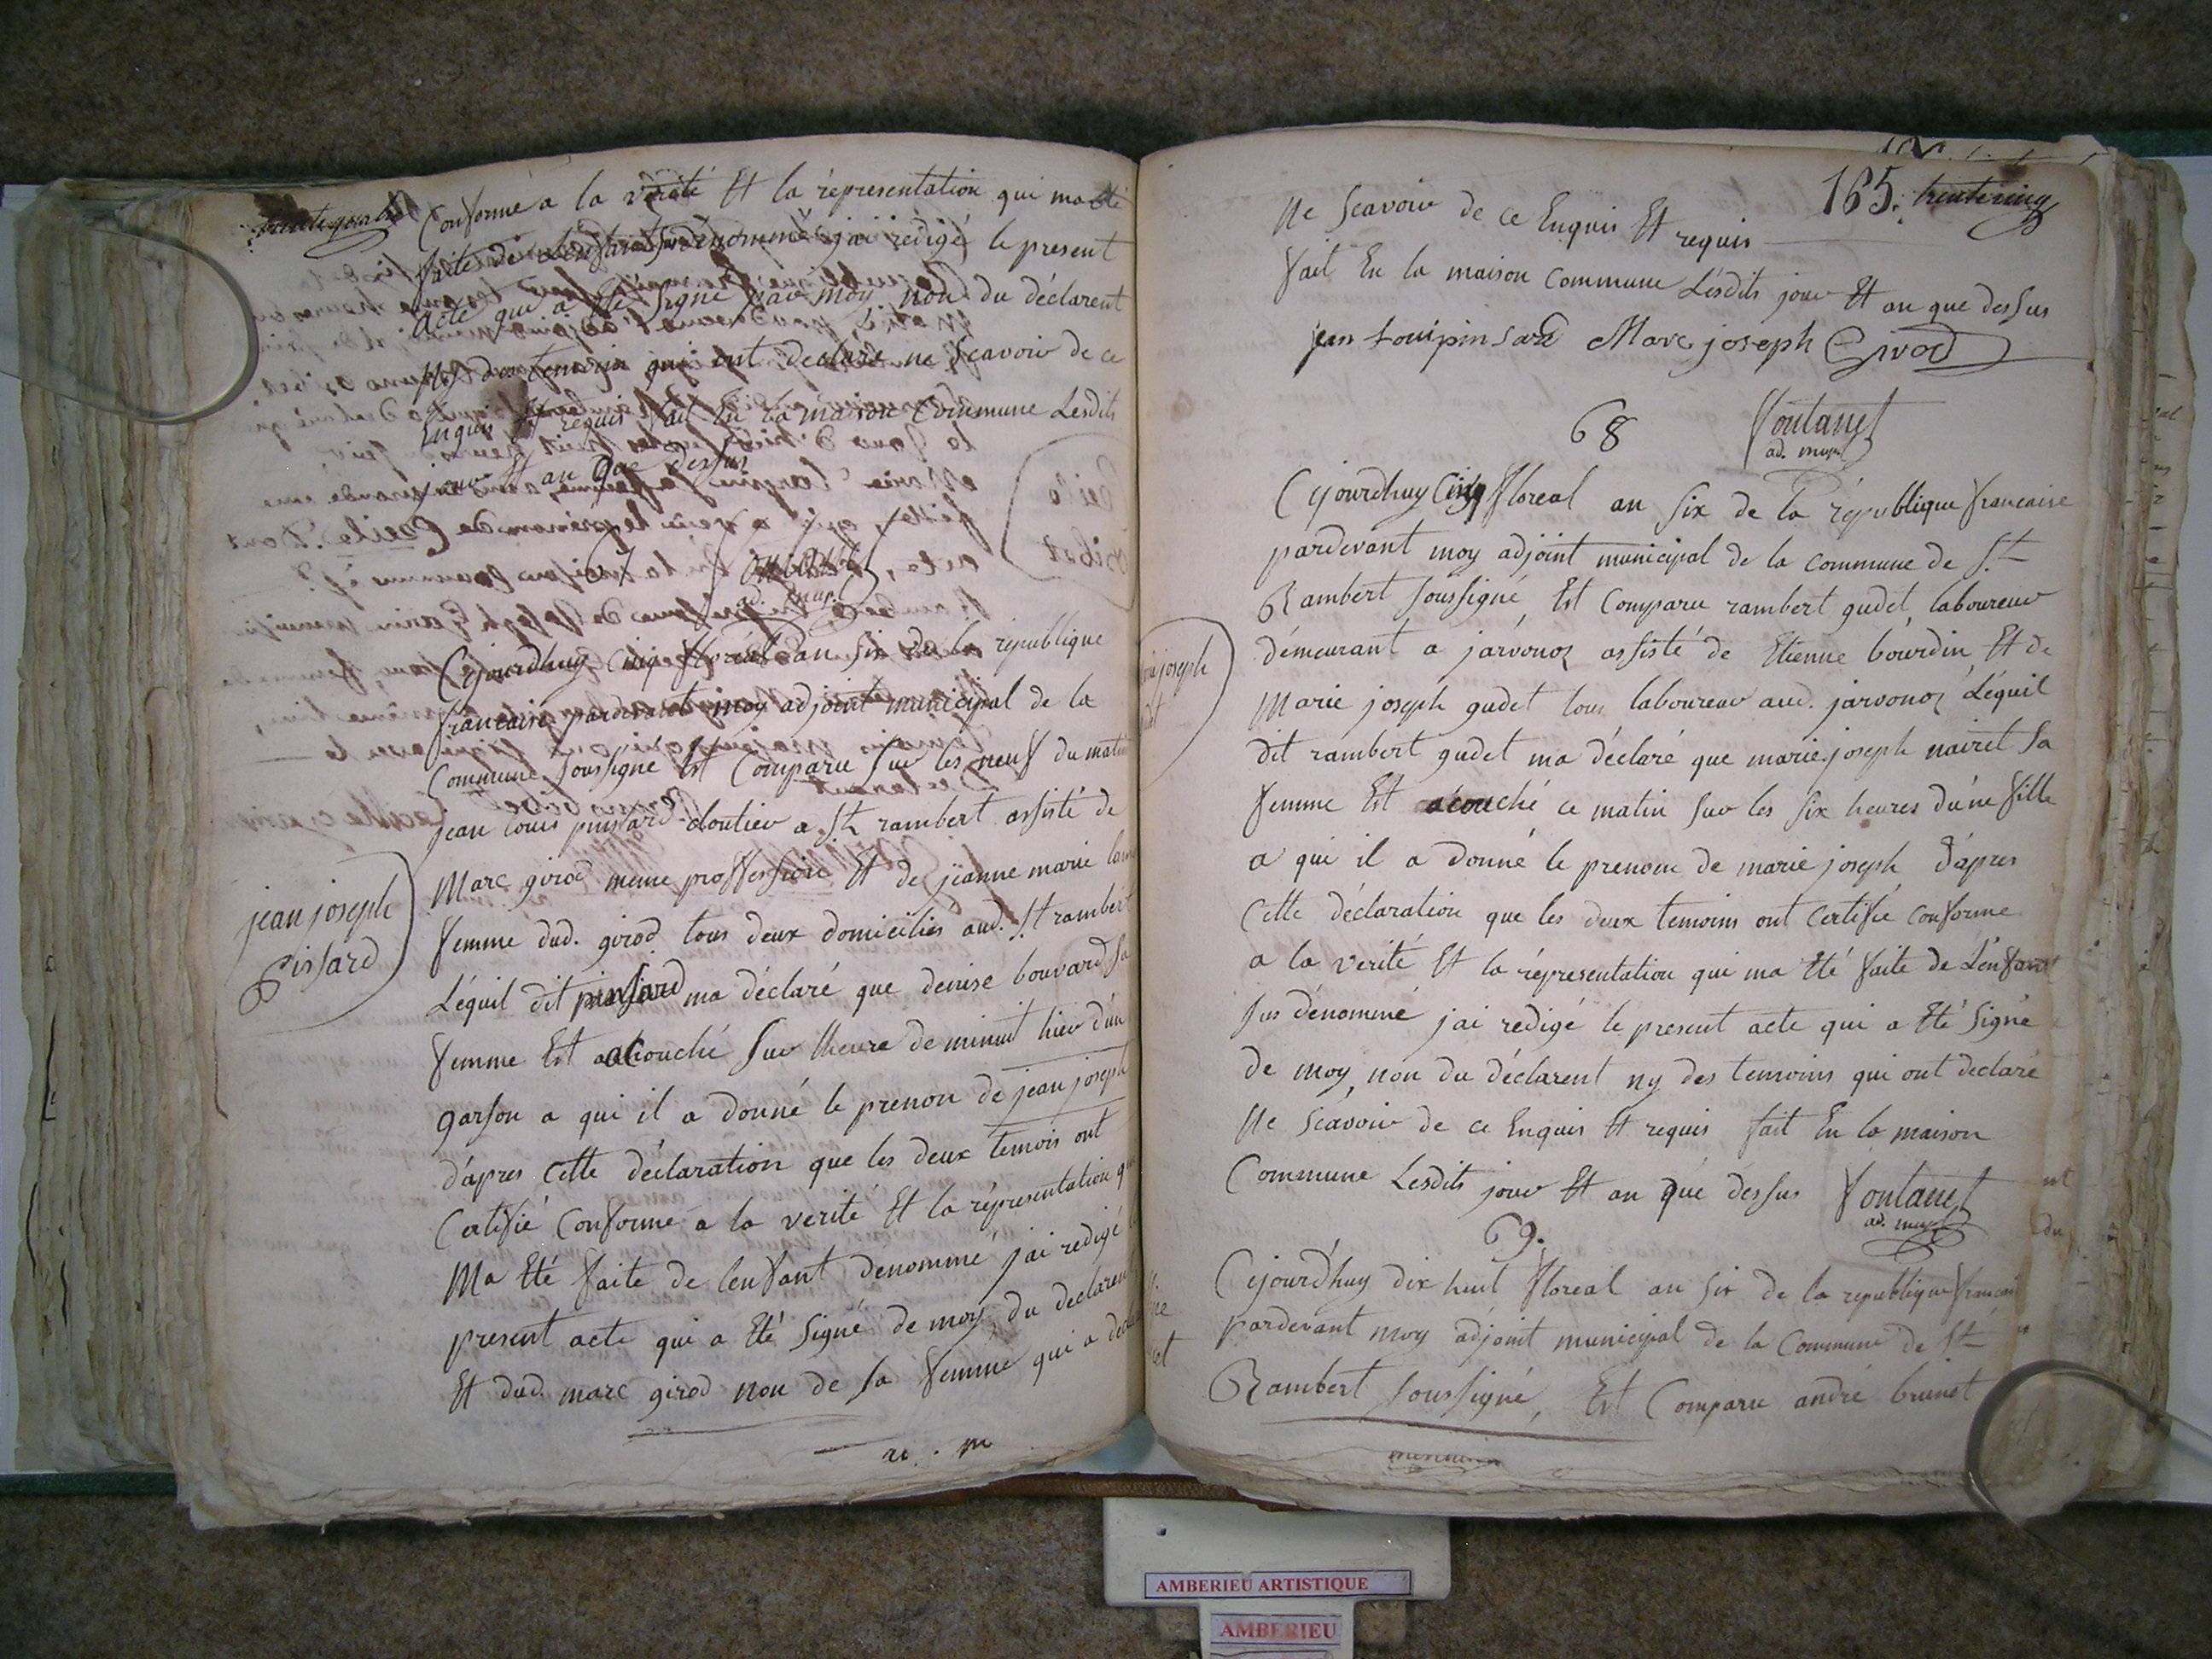 trente quatre
Conforme a la verité Et la répresentation qui ma été
faite de lenfant sus dénommé jai redigé le present
acte qui a Eté Signé par moy non du déclarent
ny des temoins qui ont declaré ne Scavoir de ce
Enquis Et requis fait En la maison Commune Lesdits
jour Et an que dessus
67 Fontanet
ad. mup.
Cejourdhuy Cinq floréal an Six de la république
francaise pardevant moy adjoint municipal de la
Commune Soussigné Est Comparu Sur les neuf du matin
jean louis pinsard cloutier a St rambert assisté de
Marc girod meme proffession Et de jeanne marie
femme dud. girod tous deux domiciliés aud. St rambert
Léquil dit pinsard ma déclaré que denise bouvard Sa
jean joseph
Pissard
femme Est accouché Sur lheure de minuit hier d'un
garson a qui il a donné le prenon de jean joseph
d'apres Cette déclaration que les deux temois ont
Certifié Conforme a la verité Et la répresentation qui
Ma Eté faite de lenfant dénommé jai redigé
present acte qui a Eté Signé de moy, du declarent
Et dud. marc girod non de Sa femme qui a
165. trente cinq
Ne Scavoir de Ce Enquis Et requis
fait En la maison Commune Lésdits jour Et an que dessus
jean Louis pinsard Marc joseph Girod
68 Fontanet
ad. mup.
Cejourdhuy Cinq floreal an Six de la république francaise
pardevant moy adjoint municipal de la Commune de St
Rambert Soussigné Est Comparu rambert gudet laboureur
démeurant a jarvonoz assisté de Etienne bourdin Et de
joseph
Marie joseph gudet tous laboureur aud. jarvonoz Léquil
dit rambert gudet ma déclaré que marie joseph nairet Sa
femme Est acouché ce matin Sur les Six heures d'une fille
a qui il a donné le prenom de marie joseph d'apres
Cette déclaration que les deux temoins ont Certifié Conforme
a la verité Et la répresentation qui ma Eté faite de L'enfant
sus dénommé jai redigé le present acte qui a Eté Signé
de moy, non du déclarent ny des temoins qui ont declaré
Ne Scavoir de ce Enquis Et requis fait En la maison
Commune Lesdits jour Et an que dessus Fontanet
ad. mup.
69.
Cejourd'huy dix huit floreal an Six de la republique francaise
pardevant moy adjoint municipal de la Commune de St
Rambert Soussigné, Est Comparu andré brunet
AMBERIEU ARTISTIQUE
AMBERIEU